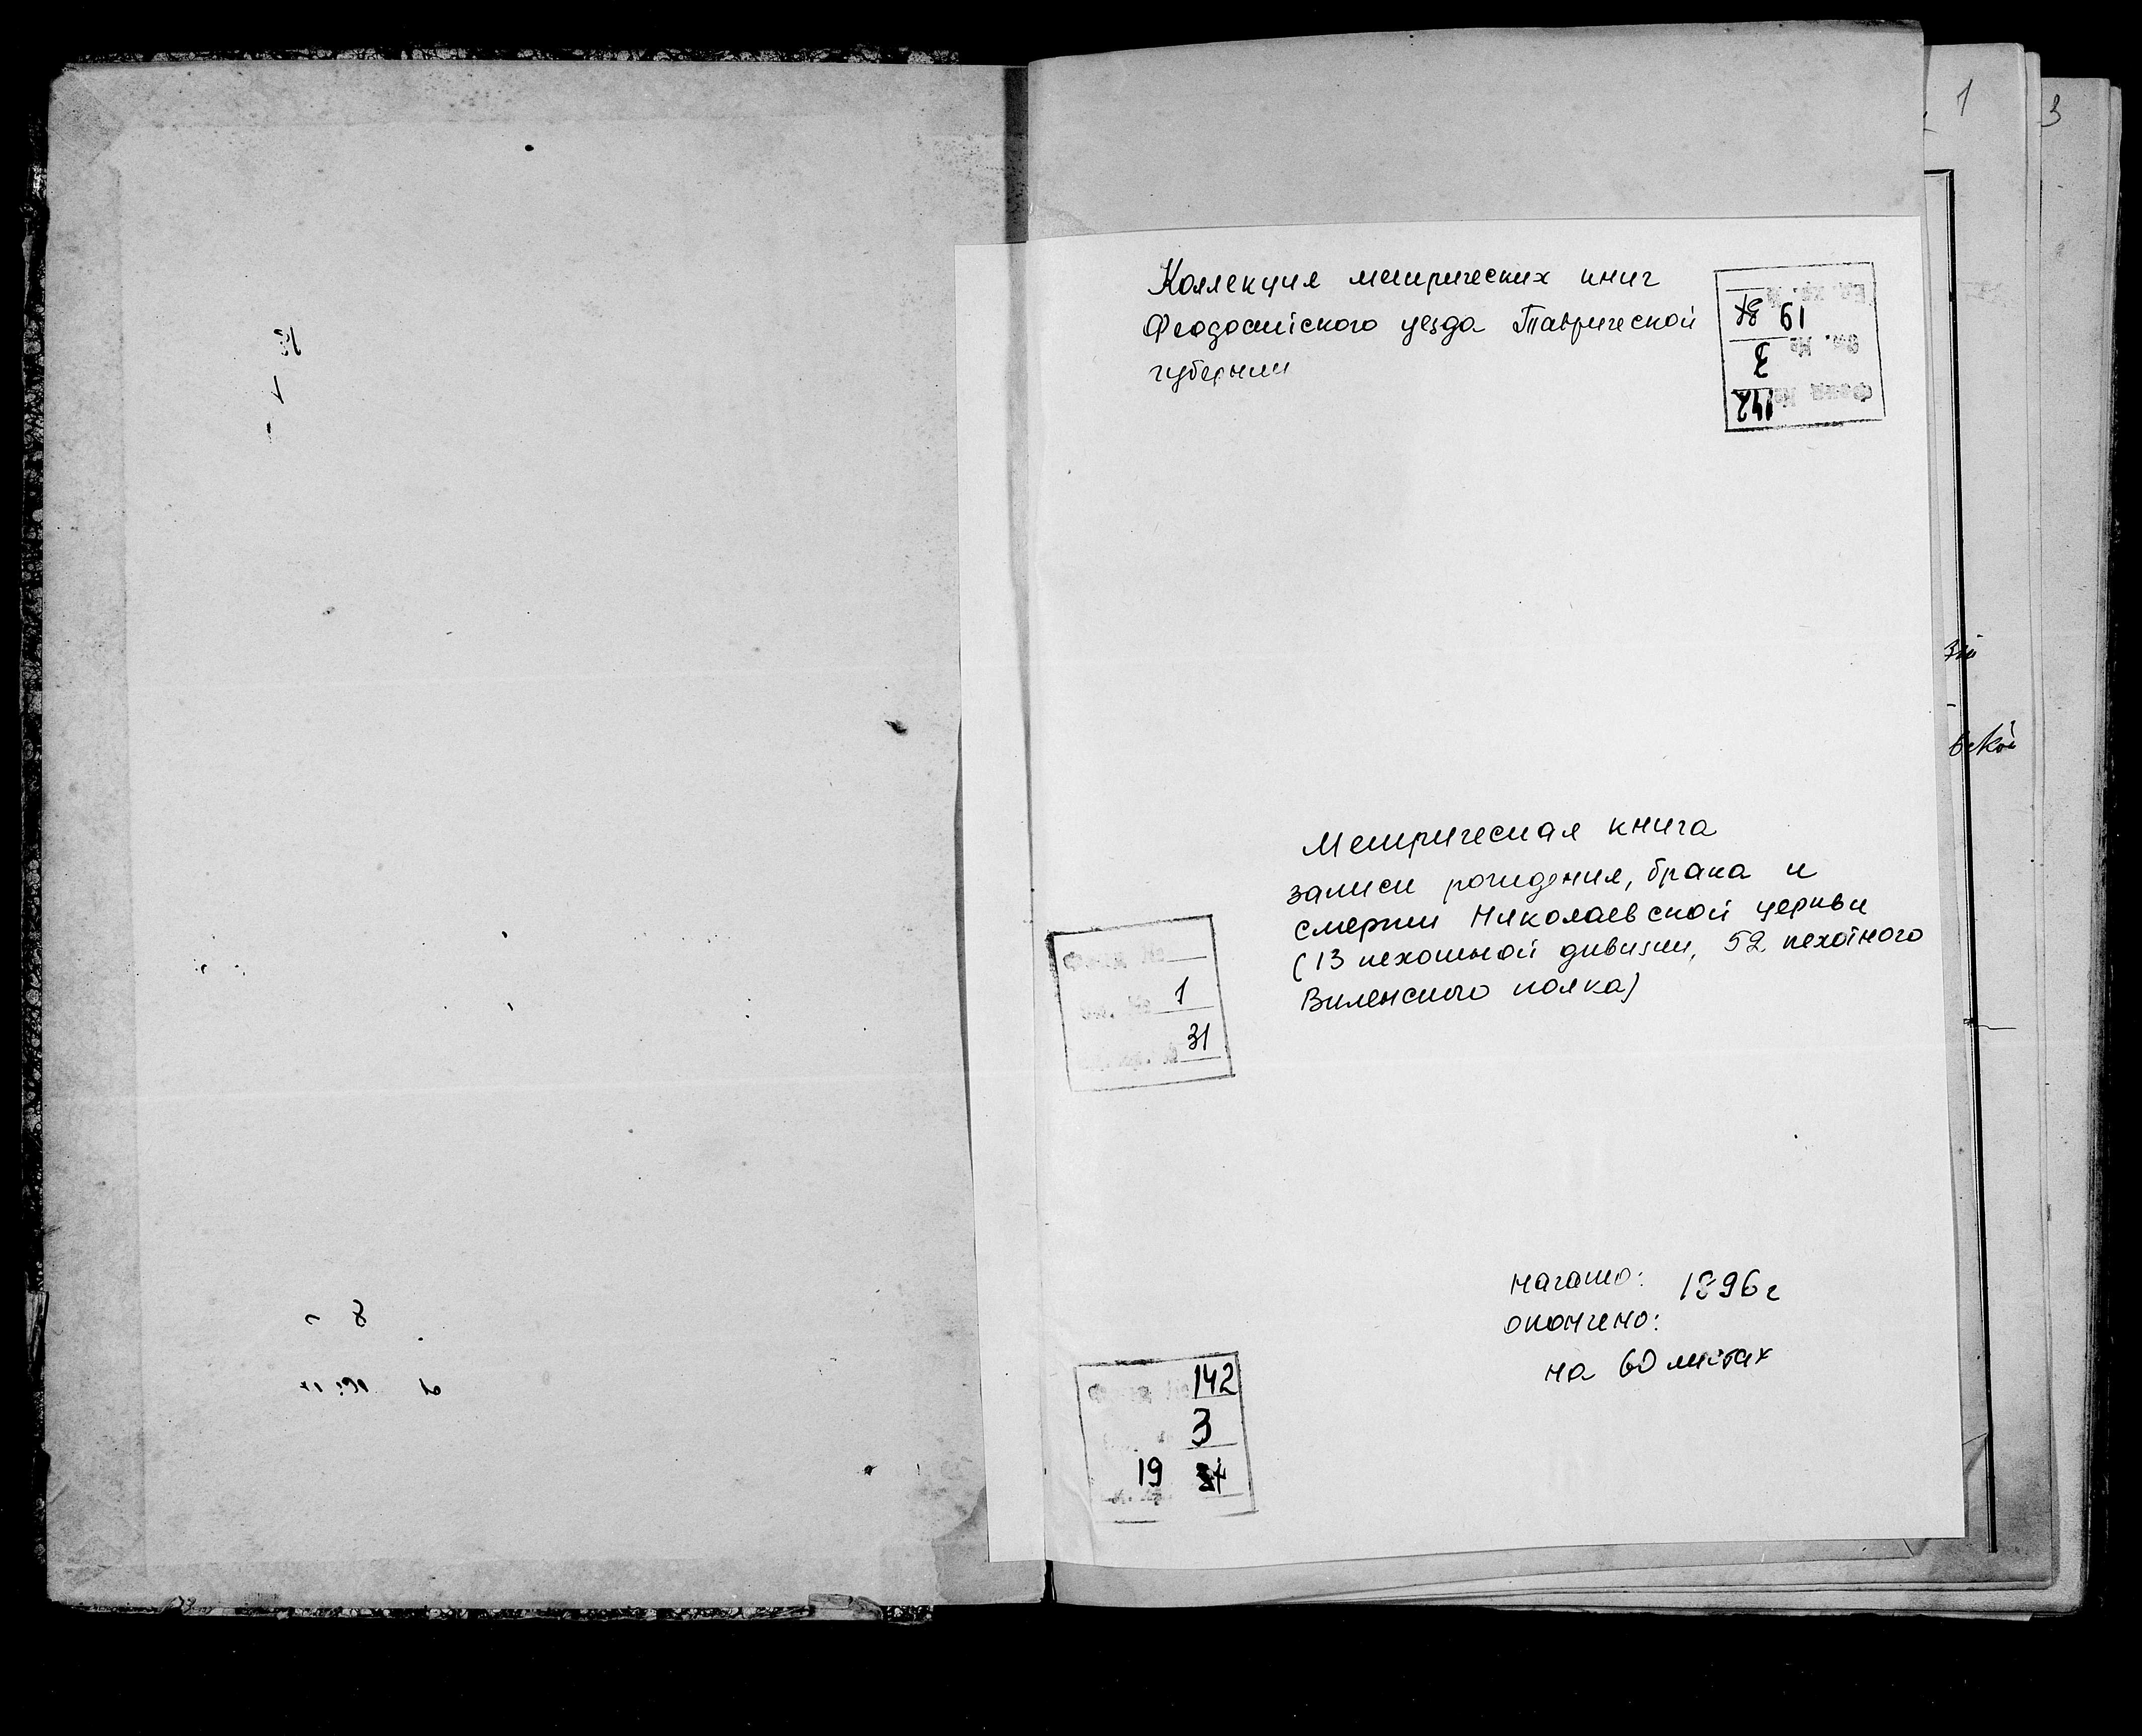 1
3
Коллекция метрических книг
Феодосийского уезда Таврической
губернии
Фонд № 142
Оп. № 3
Ед. хр. № 19
Метрическая книга
записи рождения, брака и
смерти Николаевской церкви
(13 пехотной дивизии, 52 пехотного
Виленского полка)
Фонд №
Оп. № 1
Ед. хр. № 31
начато: 1896 г
окончено:
на 60 листах
Фонд № 142
3
19 31